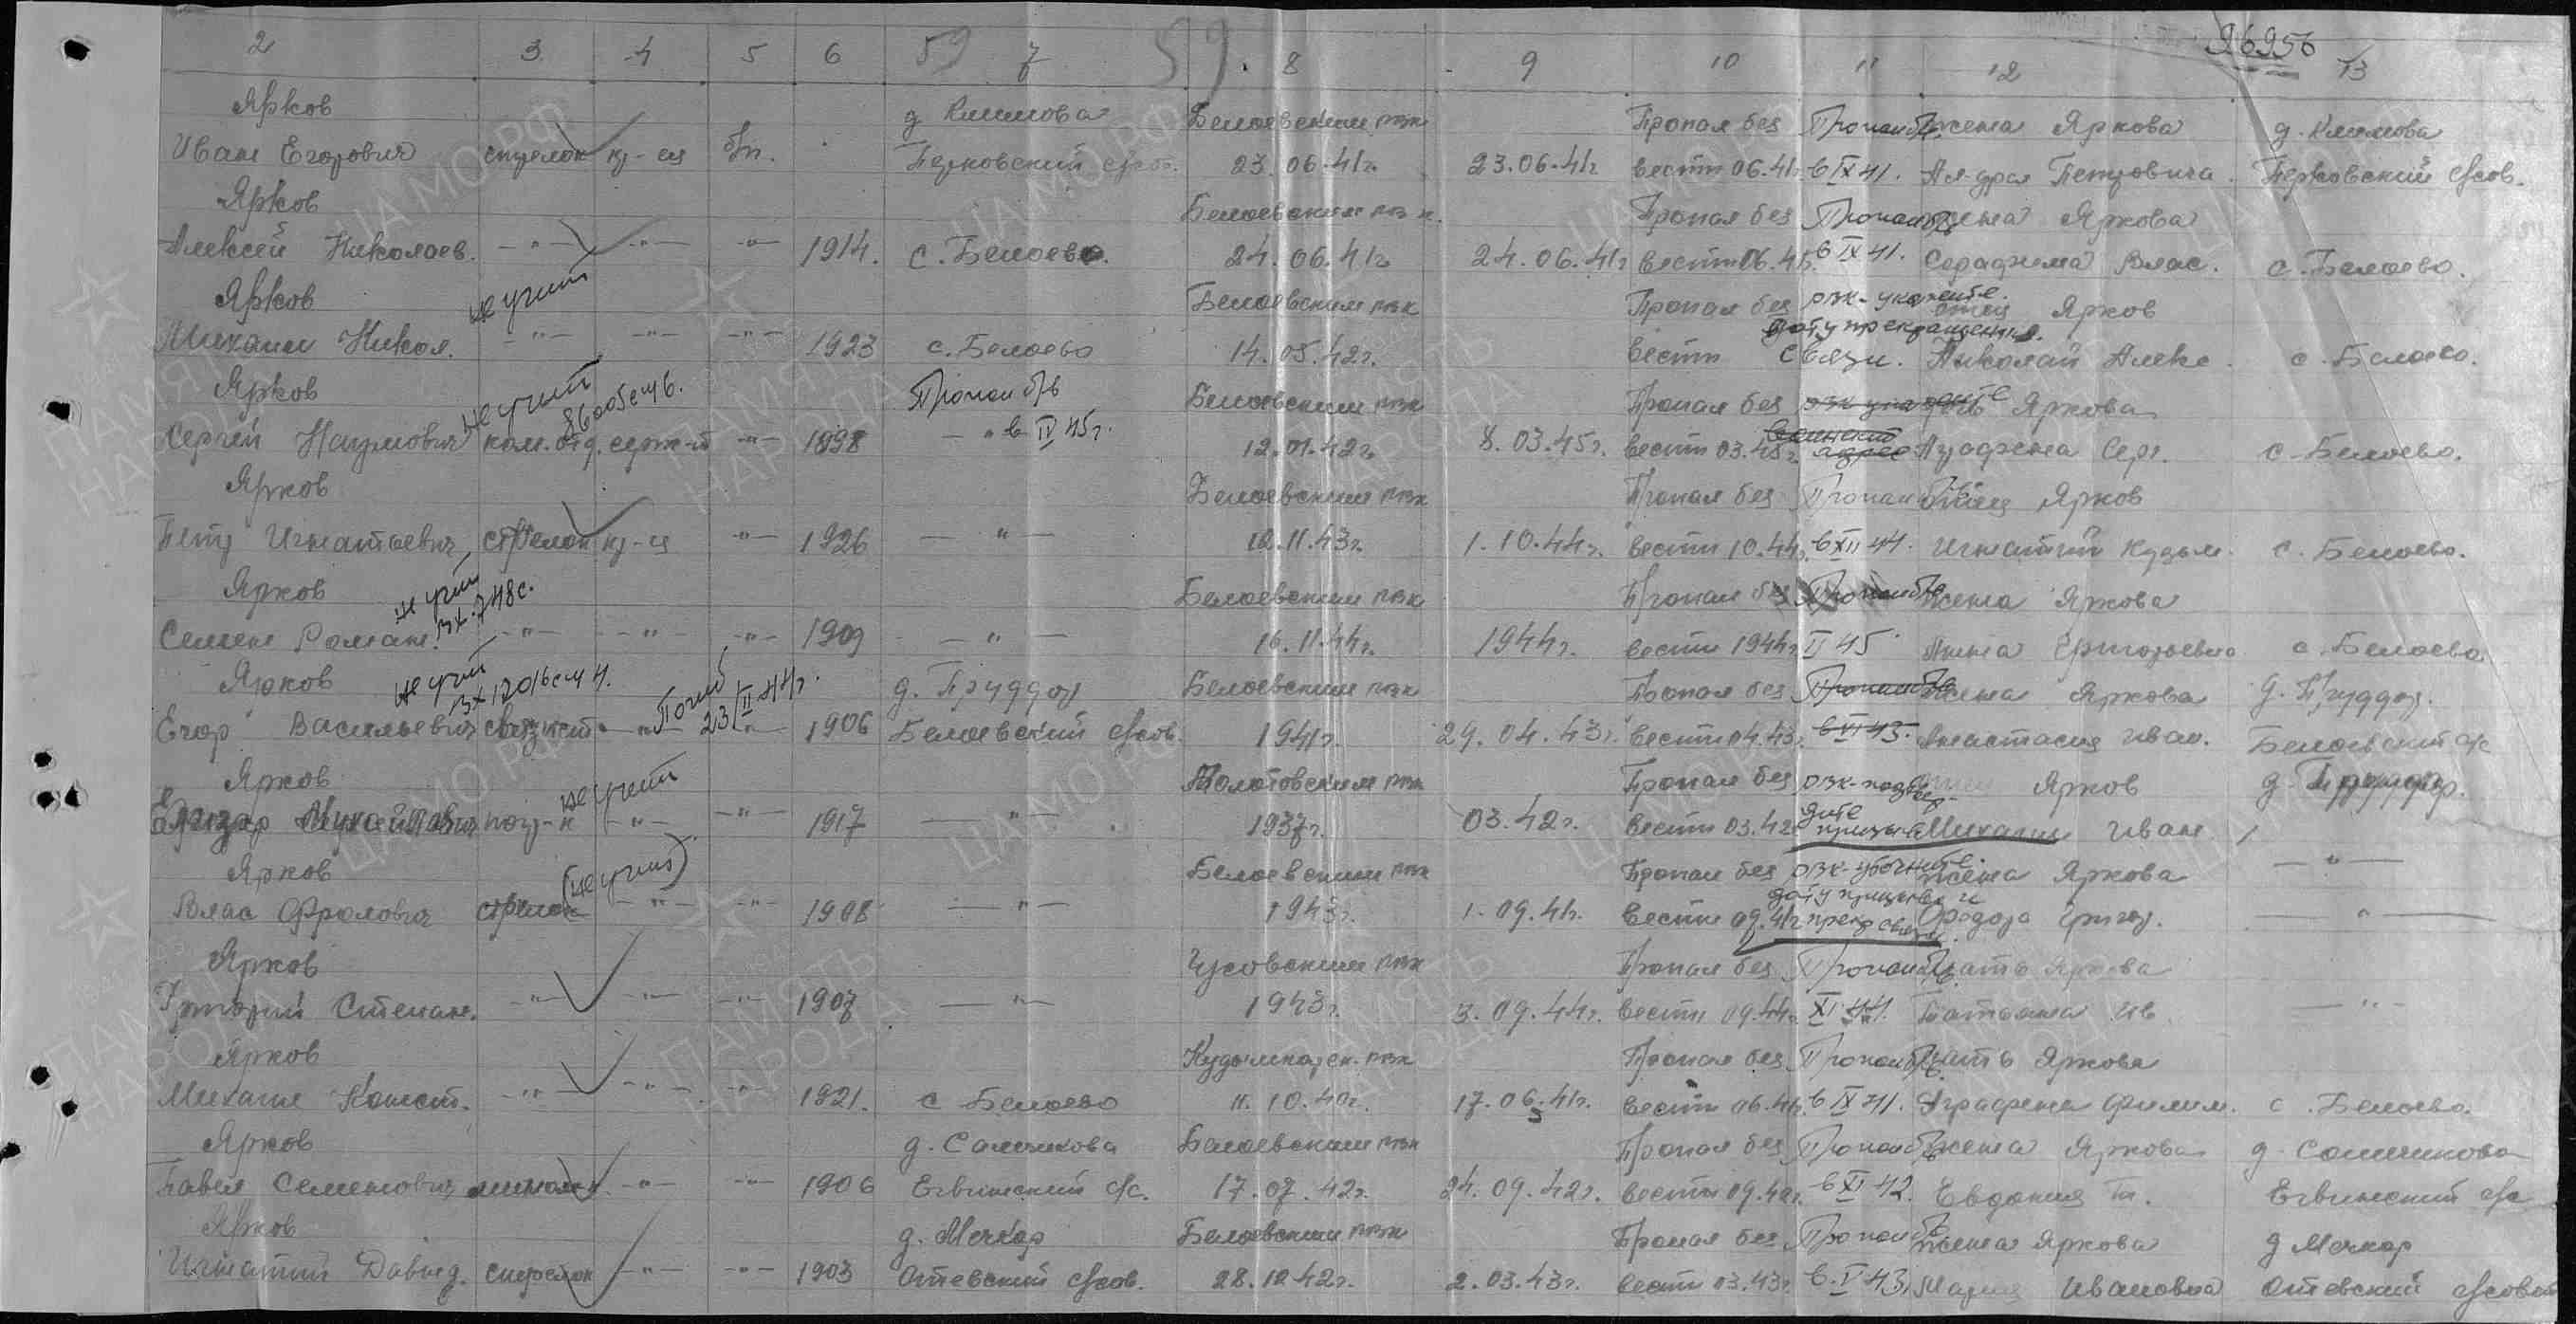 96956
59 59
2 3 4 5 6 7 8 9 10 11 12 13
Ярков д Климова Белоевским рвк Пропал без Пропал б/в жена Яркова д. Климова
Иван Егорович стрелок кр-ец б/п. Перковский с/сов. 23.06.41г. 23.06.41г вести 06.41г. в IX 41. Ал-дра Петровича Перковский с/сов.
Ярков Белоевским рвк. Пропал без Пропал б/в жена Яркова
Алексей Николаев. -"- -"- -"- 1914. с. Белоево. 24.06.41г. 24.06.41г вести 06.41г. в IX 41. Серафима Влас. с. Белоево.
Ярков не учит Белоевским рвк Пропал без рвк-укажите. отец Ярков
дату прекращения
Михаил Никол. -"- -"- -"- 1923 с. Белоево 14.05.42г. вести связи. Николай Алекс. с. Белоево.
Ярков не учит 86005 Пропал б/в Белоевским рвк Пропал без рвк дочь Яркова
Сергей Наумович ком. отд. серж-т -"- 1898 -"- в IV 45г. 12.01.42г. 8.03.45г. вести 03.45г. адрес Аграфена Серг. с. Белоево.
Ярков Белоевским рвк Пропал без Пропал б/в отец Ярков
Петр Игнатьевич стрелок кр-ец -"- 1926 -"- 12.11.43г. 1.10.44г. вести 10.44г. в XII 44. Игнатий Кузьм. с. Белоево.
Ярков не учит вх. 748с. Белоевским рвк Пропал без Пропал б/в жена Яркова
Семен Роман. -"- -"- -"- 1909 -"- 16.11.44г. 1944г. вести 1944г. II 45 Анна Григорьевна с. Белоево
Ярков не учит Погиб 23/II 44г. д. Пруддор Белоевским рвк Пропал без Пропал б/в жена Яркова д. Пруддор.
Егор Васильевич связист -"- -"- 1906 Белоевский с/сов. 1941г. 29.04.43г. вести 04.43г. в VI 43. Анастасия Иван. Белоевский с/с
Ярков не учит Молотовским рвк Пропал без рвк-подтвер- Ярков д. Пруддор.
дите
-"- -"- 1917 -"- 1937г. 03.42г. вести 03.42г. призыв Михаил Иван.
Ярков (не учит) Белоевским рвк Пропал без рвк-уточните жена Яркова -"-
дату призыва и
Влас Фролович стрелок -"- -"- 1908 -"- 1943г. 1.09.41г. вести 09.41г. прекр связи. Федора Григ. -"-
Ярков Чусовским рвк Пропал без Пропал б/в мать Яркова
Григорий Степан. -"- -"- -"- 1907 -"- 1943г. 3.09.44г. вести 09.44г. XI 44. Татьяна Ив. -"-
Ярков Кудымкарск. рвк Пропал без Пропал б/в мать Яркова
Михаил Конст. -"- -"- -"- 1921. с Белоево 11.10.40г. 17.06.41г. вести 06.41г. в IX 41. Аграфена Филим. с. Белоево.
Ярков д. Сальникова Белоевским рвк Пропал без Пропал б/в жена Яркова д. Сальникова
Павел Семенович -"- -"- 1906 Егвинский с/с. 17.07.42г. 24.09.42г. вести 09.42г. в XI 42. Евдокия Егвинский с/с
Ярков д. Мечкор Белоевским рвк Пропал без Пропал б/в жена Яркова д Мечкор
Игнатий Давид. стрелок -"- -"- 1903 Отевский с/сов. 28.12.42г. 2.03.43г. вести 03.43г. в V 43. Мария Ивановна Отевский с/совет